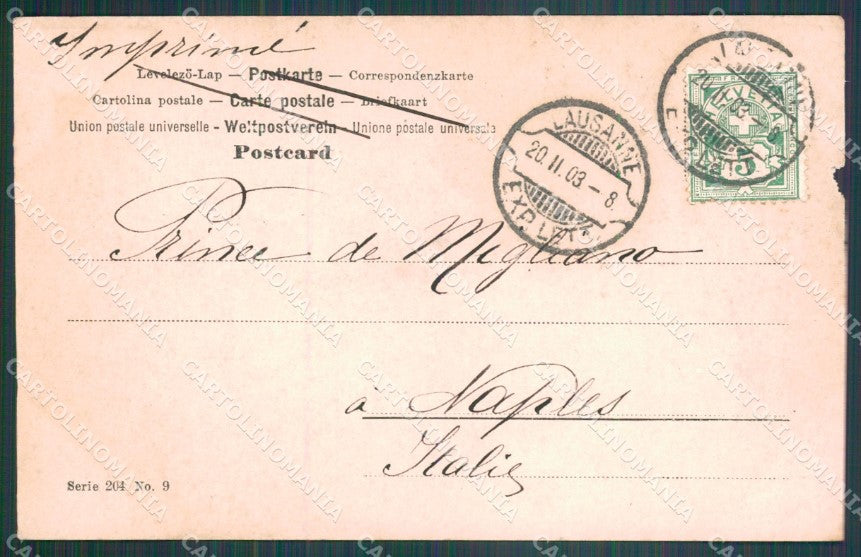 Imprimé
Levelező-Lap — Postkarte — Correspondenzkarte
Cartolina postale — Carte postale — Briefkaart
Union postale universelle - Weltpostverein - Unione postale universale
Postcard
LAUSANNE
20.II.03-8
EXP. LET.
HELVETIA
5
20.II.03-8
Prince de Migliano
à Naples
Italie
Serie 204 No. 9
CARTOLINOMANIA